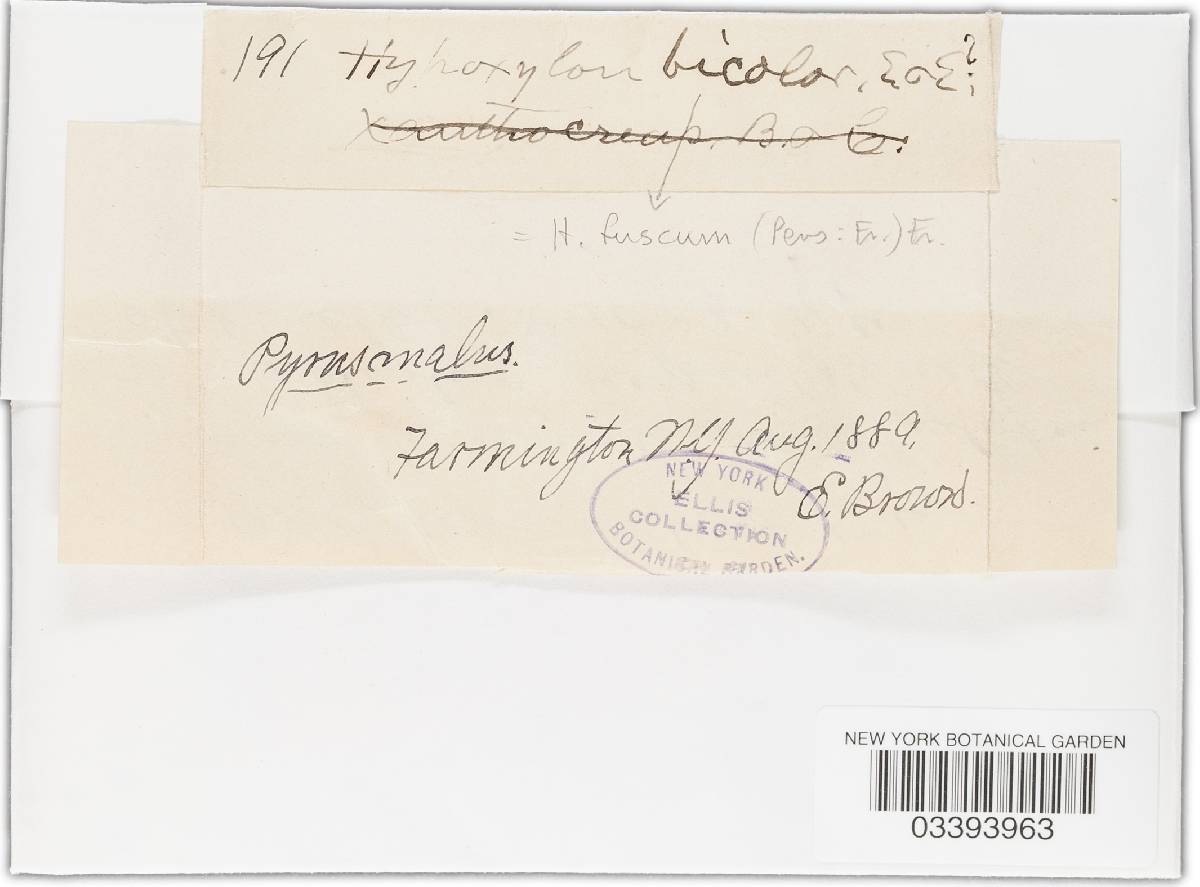 191 Hypoxylon bicolor, E & E?
xanthocreas. B. & C.
= H. fuscum (Pers: Fr.) Fr.
Pyrus malus.
Farmington N.Y. Aug. 1889.
E. Brown.
NEW YORK
ELLIS
COLLECTION
BOTANICAL GARDEN.
NEW YORK BOTANICAL GARDEN
03393963